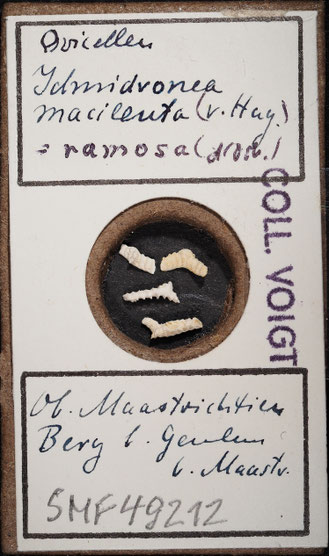 Ovicellen
Idmidronea
macilenta (v. Hag.)
= ramosa (d'Orb.)
COLL. VOIGT
Ob. Maastrichtien
Berg b. Geulem
b. Maastr.
SMF49212